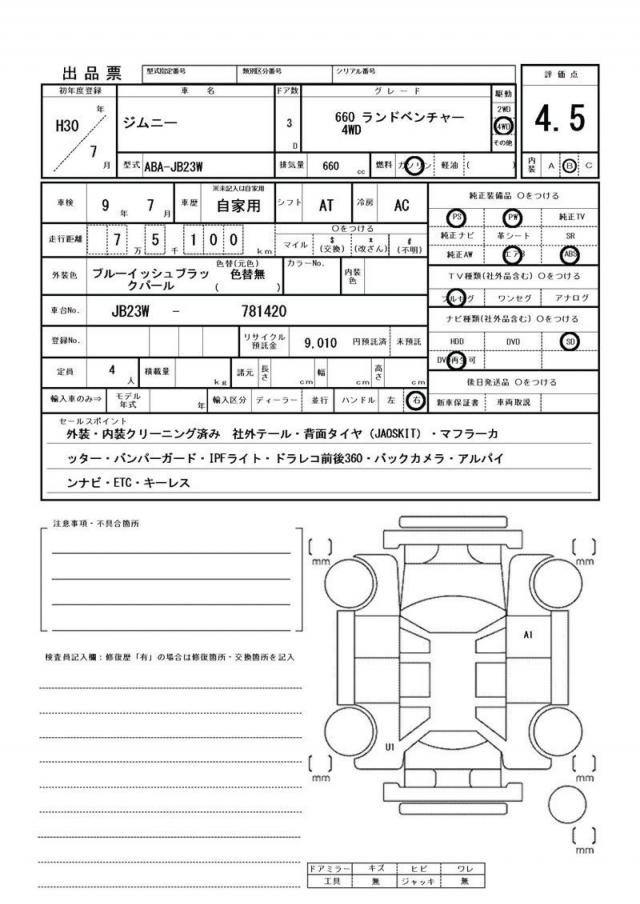 出品票 型式指定番号 類別区分番号 シリアル番号
評価点
4.5
初年度登録 車名 ドア数 グレード 駆動
H30 年 7 月
ジムニー
3 D
660 ランドベンチャー
4WD
2WD
4WD
その他
型式 ABA-JB23W 排気量 660 cc 燃料 ガソリン 軽油 ( )
内装 A B C
車検 9 年 7 月 車歴 ※未記入は自家用 自家用 シフト AT 冷房 AC
走行距離 7 万 5 千 1 0 0 km
〇をつける
マイル $ (交換) x (改ざん) # (不明)
外装色 ブルーイッシュブラックパール 色替(元色) 色替無 ( ) カラーNo. 内装色
車台No. JB23W - 781420
登録No. リサイクル預託金 9,010 円預託済 未預託
定員 4 人 積載量 kg 諸元 長さ cm 幅 cm 高さ cm
輸入車のみ⇒ モデル年式 年 輸入区分 ディーラー 並行 ハンドル 左 右
純正装備品 〇をつける
PS PW 純正TV
純正ナビ 革シート SR
純正AW エアB ABS
TV種類(社外品含む) 〇をつける
フルセグ ワンセグ アナログ
ナビ種類(社外品含む) 〇をつける
HDD DVD SD
DVD再生可
後日発送品 〇をつける
新車保証書 車両取説
セールスポイント
外装・内装クリーニング済み 社外テール・背面タイヤ（JAOSKIT）・マフラーカ
ッター・バンパーガード・IPFライト・ドラレコ前後360・バックカメラ・アルパイ
ンナビ・ETC・キーレス
注意事項・不具合箇所
検査員記入欄：修復歴「有」の場合は修復箇所・交換箇所を記入
[ ] mm
[ ] mm
A1
U1
[ ] mm
[ ] mm
[ ] mm
ドアミラー キズ ヒビ ワレ
工具 無 ジャッキ 無